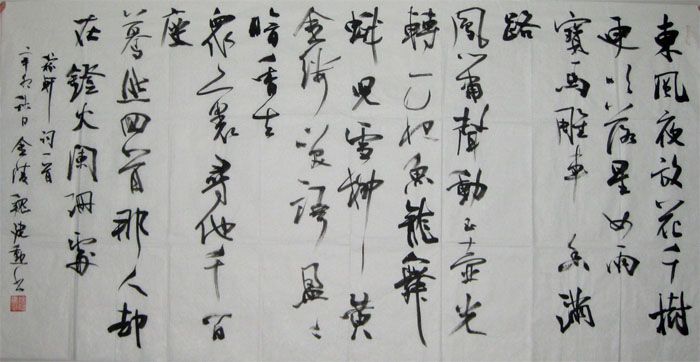 東風夜放花千樹
更吹落星如雨
寶馬雕車香滿
路
鳳簫聲動玉壺光
轉一夜魚龍舞
蛾兒雪柳黃
金縷笑語盈々
暗香去
眾裏尋他千百
座
驀然回首那人却
在鐙火闌珊處
稼軒詞一首
辛卯秋日金陵魏